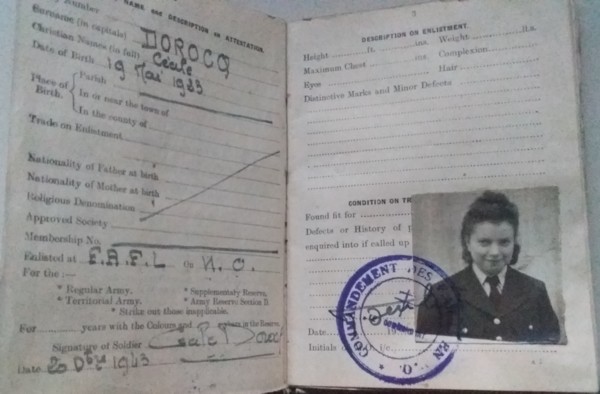 Number
NAME AND DESCRIPTION ON ATTESTATION.
Surname (in capitals) DOROCQ
Christian Names (in full) Cécile
Date of Birth 19 Mai 1923
Place of Birth. Parish
In or near the town of
In the county of
Trade on Enlistment
Nationality of Father at birth
Nationality of Mother at birth
Religious Denomination
Approved Society
Membership No.
Enlisted at F.A.F.L On N.O.
For the :—
* Regular Army. * Supplementary Reserve.
* Territorial Army. * Army Reserve Section B.
* Strike out those inapplicable.
For years with the Colours and years in the Reserve.
Signature of Soldier
Date 20 Dbre 1943
3
DESCRIPTION ON ENLISTMENT.
Height ft. ins. Weight lbs.
Maximum Chest ins. Complexion
Eyes Hair
Distinctive Marks and Minor Defects
CONDITION ON TR
Found fit for
Defects or History of
enquired into if called up
COMMANDEMENT DES
Date 19
Initials of i/c